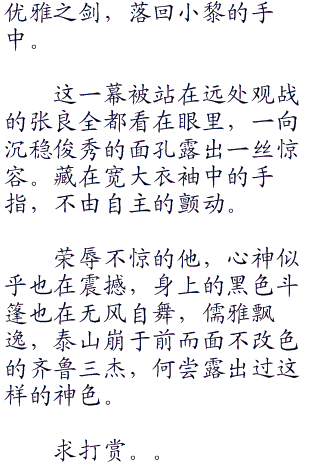 优雅之剑，落回小黎的手
中。
这一幕被站在远处观战
的张良全都看在眼里，一向
沉稳俊秀的面孔露出一丝惊
容。藏在宽大衣袖中的手
指，不由自主的颤动。
荣辱不惊的他，心神似
乎也在震撼，身上的黑色斗
篷也在无风自舞，儒雅飘
逸，泰山崩于前而面不改色
的齐鲁三杰，何尝露出过这
样的神色。
求打赏。。